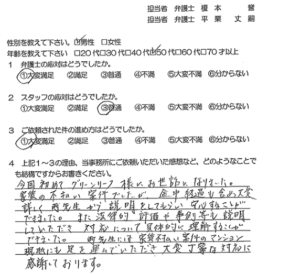 担当者 弁護士 榎本 誉
担当者 弁護士 平栗 丈嗣
性別を教えて下さい。 ①男性 □女性
年齢を教えて下さい □20代□30代□40代□50代□60代□70才以上
1 弁護士の応対はどうでしたか。
①大変満足 ②満足 ③普通 ④不満 ⑤大変不満 ⑥分からない
2 スタッフの応対はどうでしたか。
①大変満足 ②満足 ③普通 ④不満 ⑤大変不満 ⑥分からない
3 ご依頼された件の進め方はどうでしたか。
①大変満足 ②満足 ③普通 ④不満 ⑤大変不満 ⑥分からない
4 上記1～3の理由、当事務所にご依頼いただいた感想など、どのようなことで
も結構ですからお書きください。
今回初めてグリーンリーフ様にお世話になりました。
家賃の不払い案件でしたが、途中経過も含め大変
詳しく両先生から説明をしてもらい安心することが
できました。また法律的評価や事例等も説明
していただき対応について具体的に理解することが
できました。両先生には家賃不払い案件のマンション
現地にも足を運んでいただき大変丁寧な対応に
感謝しております。